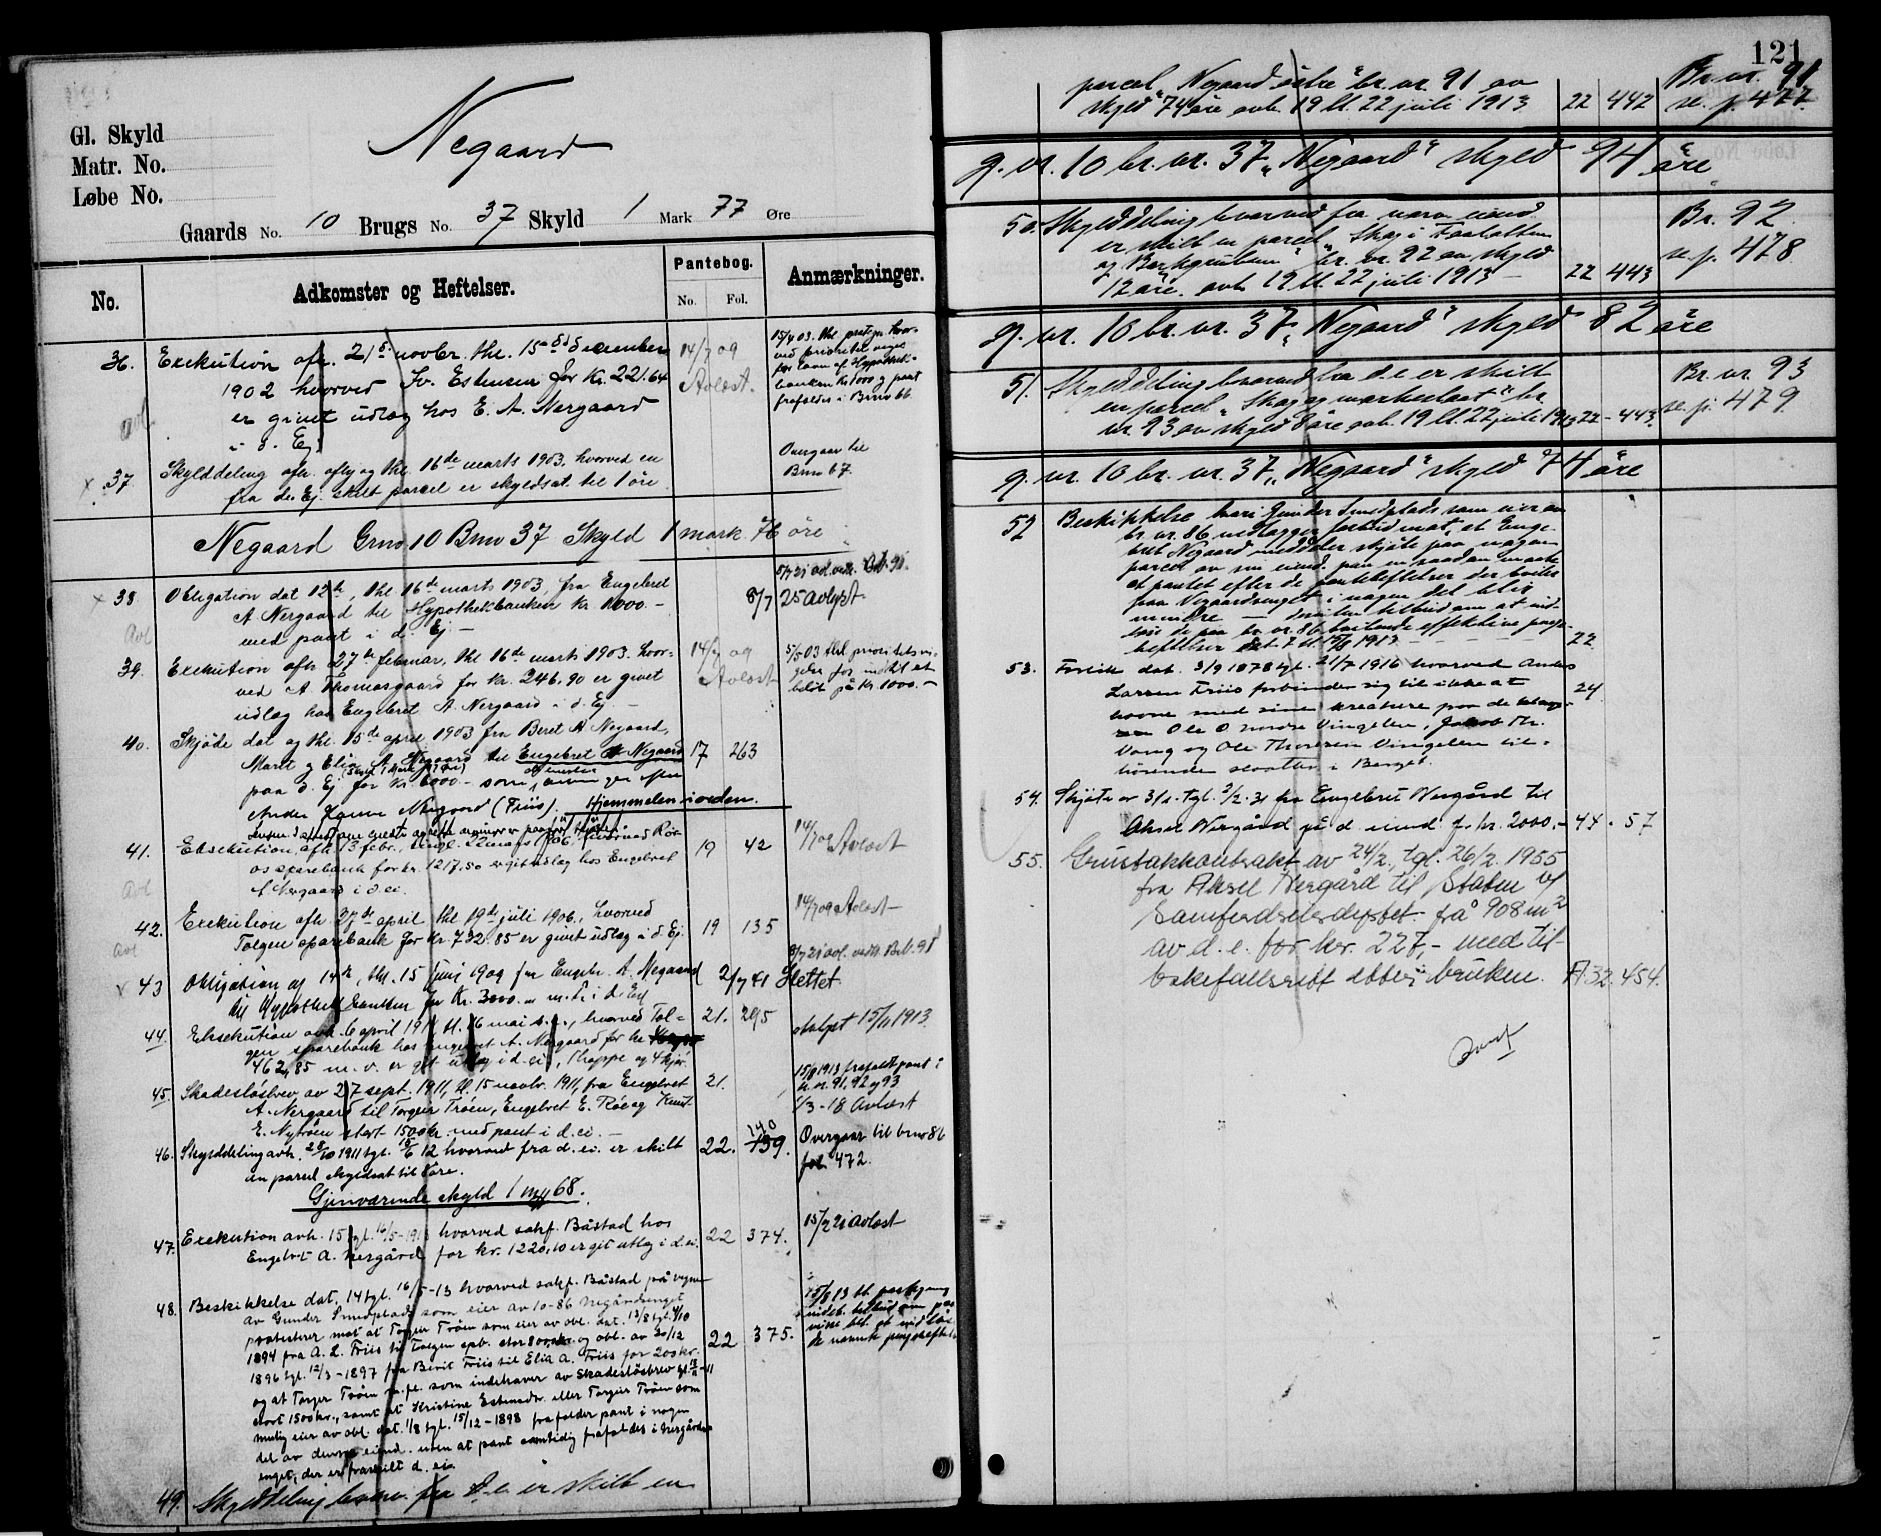 Negaard
Gl. Skyld
Matr. No.
Løbe No.
Gaards No. 10 Brugs No. 37 Skyld 1 Mark 77 Øre
No. Adkomster og Heftelser. Pantebog. No. Fol. Anmærkninger.
36. Exekution afh. 21 novbr. thl. 15de december 14/7 09
1902 hvorved Sv. Estensen for Kr. 221.64 Avlæst.
er givet udlæg hos E. A. Nergaard
i d. Ej
37 Skylddeling afh. og thl. 16de marts 1903, hvorved en Overgaar til
fra d. Ej. skilt parcel er skyldsat til 1 øre Brno 67.
Negaard Grno 10 Brno 37 Skyld 1 mark 76 øre
38 Obligation dat 12te, thl 16de marts 1903, fra Engebret
A Nergaard til Hypothekbanken Kr. 1000.- 8/7 25 avlyst
med pant i d. Ej.-
39. Exekution afh 27de februar, thl 16de marts 1903. hvor- 14/7 09
ved A Thomasgaard for Kr. 246.90 er givet Avlæst
udlæg hos Engebret A. Nergaard i d. Ej. -
40. Skjøde dat og thl. 15de april 1903 fra Beret A Negaard,
Marit og Elia A. Negaard til Engebret A Negaard 17 263
paa d. Ej for Kr. 6000.- som
Hjemmelen i orden.
41. Eksekution afh. 13 febr., 1906, Røro- 19 42 14/7 09 Avlæst
os sparebank for kr. 1217.50 er git udlæg hos Engebret
A Nergaard i d. ei.
42. Exekution afh 27de april thl 19de juli 1906, hvorved 14/7 09 Avlæst
Tolgen sparebank for Kr. 732.85 er givet udlæg i d. Ej. 19 135
43 Obligation af 14de, thl. 15 juni 1909 fra Engebr. A. Negaard 2/7 41 Slettet
til Hypothekbanken for Kr. 3000.- m. P. i d. Ej
44. Eksekution avh. 6 april 1911 tl. 16 mai s. a., hvorved Tol- 21. 295 Avlyst 15/11 1913.
gen sparebank hos Engebret A. Nergaard for kr.
462,85 m. v. er git utlæg i d. ei., 1 hoppe og 4 kjør.
45. Skadesløsbrev av 27 sept. 1911, tl. 15 novbr. 1911, fra Engebret 21.
A. Nergaard til Torger Trøen, Engebret E. Røe og Knut
E. Nytrøen stort 1500 kr. med pant i d. ei. - 1/3-18 Avlæst
46. Skylddeling avh. 28/10 1911 tgl. 15/6 12 hvorved fra d. ei. er skilt 22. 140 139. Overgaar til brno 86
en parcel skyldsat til 8 øre. fol 472.
Gjenværende skyld 1 m 68.
47. Exekution avh. 15 tgl. 16/5-1913 hvorved sakf. Båstad hos 15/7 21 avlæst
Engebret A. Nergård for kr. 1220,10 er git utlæg i d. ei. 22 374.
48. Beskikkelse dat. 14 tgl. 16/5-13 hvorved sakf. Båstad på vegne
av Gunder Smedplads som eier av 10-86 Negårdsenget
protesterer mot at Torger Trøen som eier av obl. dat. 13/8 tgl. 4/10
1894 fra A. L. Friis til Tolgen spb. stor 800 kr. og obl. av 30/12 22 375.
1896 tgl. 12/3-1897 fra Berit Friis til Elia A. Friis for 200 kr.
og at Torger Trøen m. fl. som indehaver av skadesløsbrev tgl. 15/11-11
stort 1500 kr., samt at Kristine Estensdr. eller Torger Trøen som
mulig eier av obl. dat. 1/8 tgl. 15/12-1898 frafalder pant i nogen
del av denne eiend. uten at pant samtidig frafaldes i Nergårds-
enget, der er fraskilt d. ei.
49. Skylddeling hvorv. fra d. e. er skilt en
121
parcel „Negaard østre" br. nr. 91 av Br. nr. 91
skyld 74 øre avh. 19 tl. 22 juli 1913 22 442 se. p. 477.
g. nr. 10 br. nr. 37 „Negaard" skyld 94 øre
50. Skylddeling hvorved fra nærv. eiend. Br. 92
er skilt en parcel „Skog i Faalotten se. p. 478
og Bækgruben" br. nr. 92 av skyld
12 øre. avh 19 tl 22 juli 1913 - 22 443
g. nr. 10 br. nr. 37 „Negaard" skyld 82 øre
51. Skylddeling hvorved fra d. e er skilt Br. nr. 93
en parcel „Skog og markeslaat" br. se. p. 479.
nr. 93 av skyld 8 øre avh. 19 tl. 22 juli 1913 22 - 443.
g. nr. 10 br. nr. 37 „Negaard" skyld 74 øre
52 Beskikkelse hvori Gunder Smedplads som eier av
br. nr. 86 nedlægger forbud mot, at Enge-
bret Negaard meddeler skjøte paa nogen
parcel av sin eiend. paa en saadan maate
at pantet efter de panteheftelser der hviler
paa Negaardsenget i nogen del blir
mindre - desuten tilbud om at ind-
løse de paa br. nr. 86 hvilende effektive penge-
heftelser dat. 7 tl 15/8 1913 22
53. Forlik dat. 3/9 1878 tgl. 21/7 1916 hvorved Anders
Larsen Friis forbinder sig til ikke at 24
havne med sine kreature paa de
Ole O nordre Vingelen, Jakob Thr.
Vang og Ole Thoresen Vingelen til-
hørende slaatter i Berget.
54. Skjøte av 3/1. tgl. 2/2. 31 fra Engebret Nergård til
Aksel Nergård på d. eiend. for kr. 2000,- 44. 57
55. Grustakkontrakt av 24/2, tgl. 26/2. 1955
fra Aksel Nergård til Staten v/
Samferdselsdeptet. frå 908 m2
av d. e. for kr. 227,- med til-
bakefallsrett etter bruken. A 32. 454.